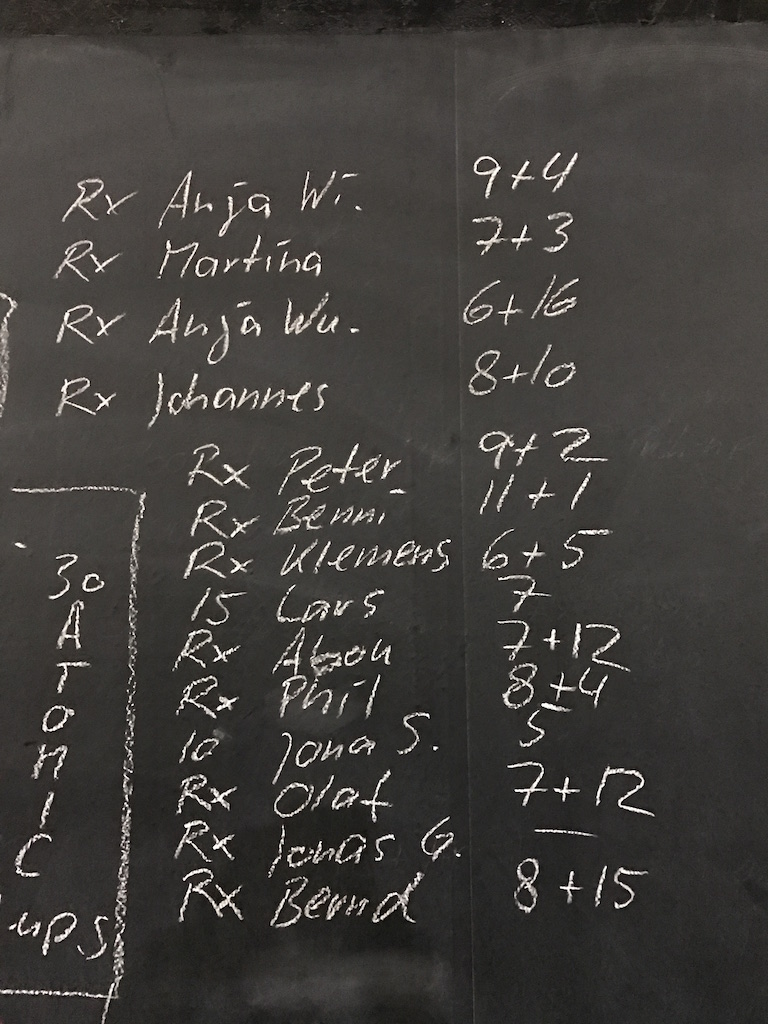 Rx Anja Wi. 9+4
Rx Martina 7+3
Rx Anja Wu. 6+16
Rx Johannes 8+10
Rx Peter 9+2
Rx Benni 11+1
Rx Klemens 6+5
15 Lars 7
Rx Abou 7+12
Rx Phil 8+4
10 Jona S. 5
Rx Olaf 7+12
Rx Jonas G. —
Rx Bernd 8+15
30
A
T
O
M
I
C
-ups